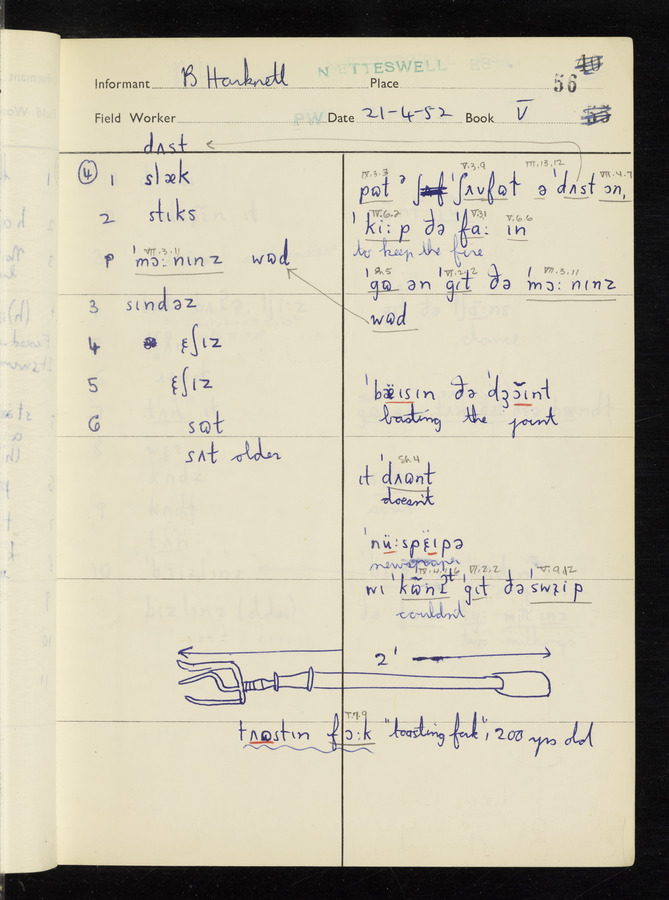 Informant B Harknett NETTESWELL Place 56
Field Worker PW Date 21-4-52 Book V
dʌst
④ 1 slæk
2 stɪks
P VII.3.11
ˈmɔ:nɪnz wɒd
3 sɪndəz
4 ɛʃɪz
5 ɛʃɪz
6 sɒt
sʌt older
IV.3.3 V.3.9 VI.13.12 VII.4.7
pɒt ə ˈʃʌvfɒt ə ˈdʌst ɔn,
IV.6.2 V.3.1 V.6.6
ˈki:p ðə ˈfa: ɪn
to keep the fire
VI.2.2 VII.3.11
ˈgɒ ən ˈgɪt ðə ˈmɔ:nɪnz
wɒd
ˈbæ̈ɪsɪn ðə ˈdʒɔ̆ɪnt
basting the joint
ɪt ˈdʌɒnt
doesn't
ˈnü:spɛ̈ɪpə
newspaper
VI.2.2 V.9.12
wɪ ˈgɪt ðə ˈswɪip
couldn't
2'
V.7.9
trʌɒstɪn fɔ:k "toasting fork", 200 yrs old